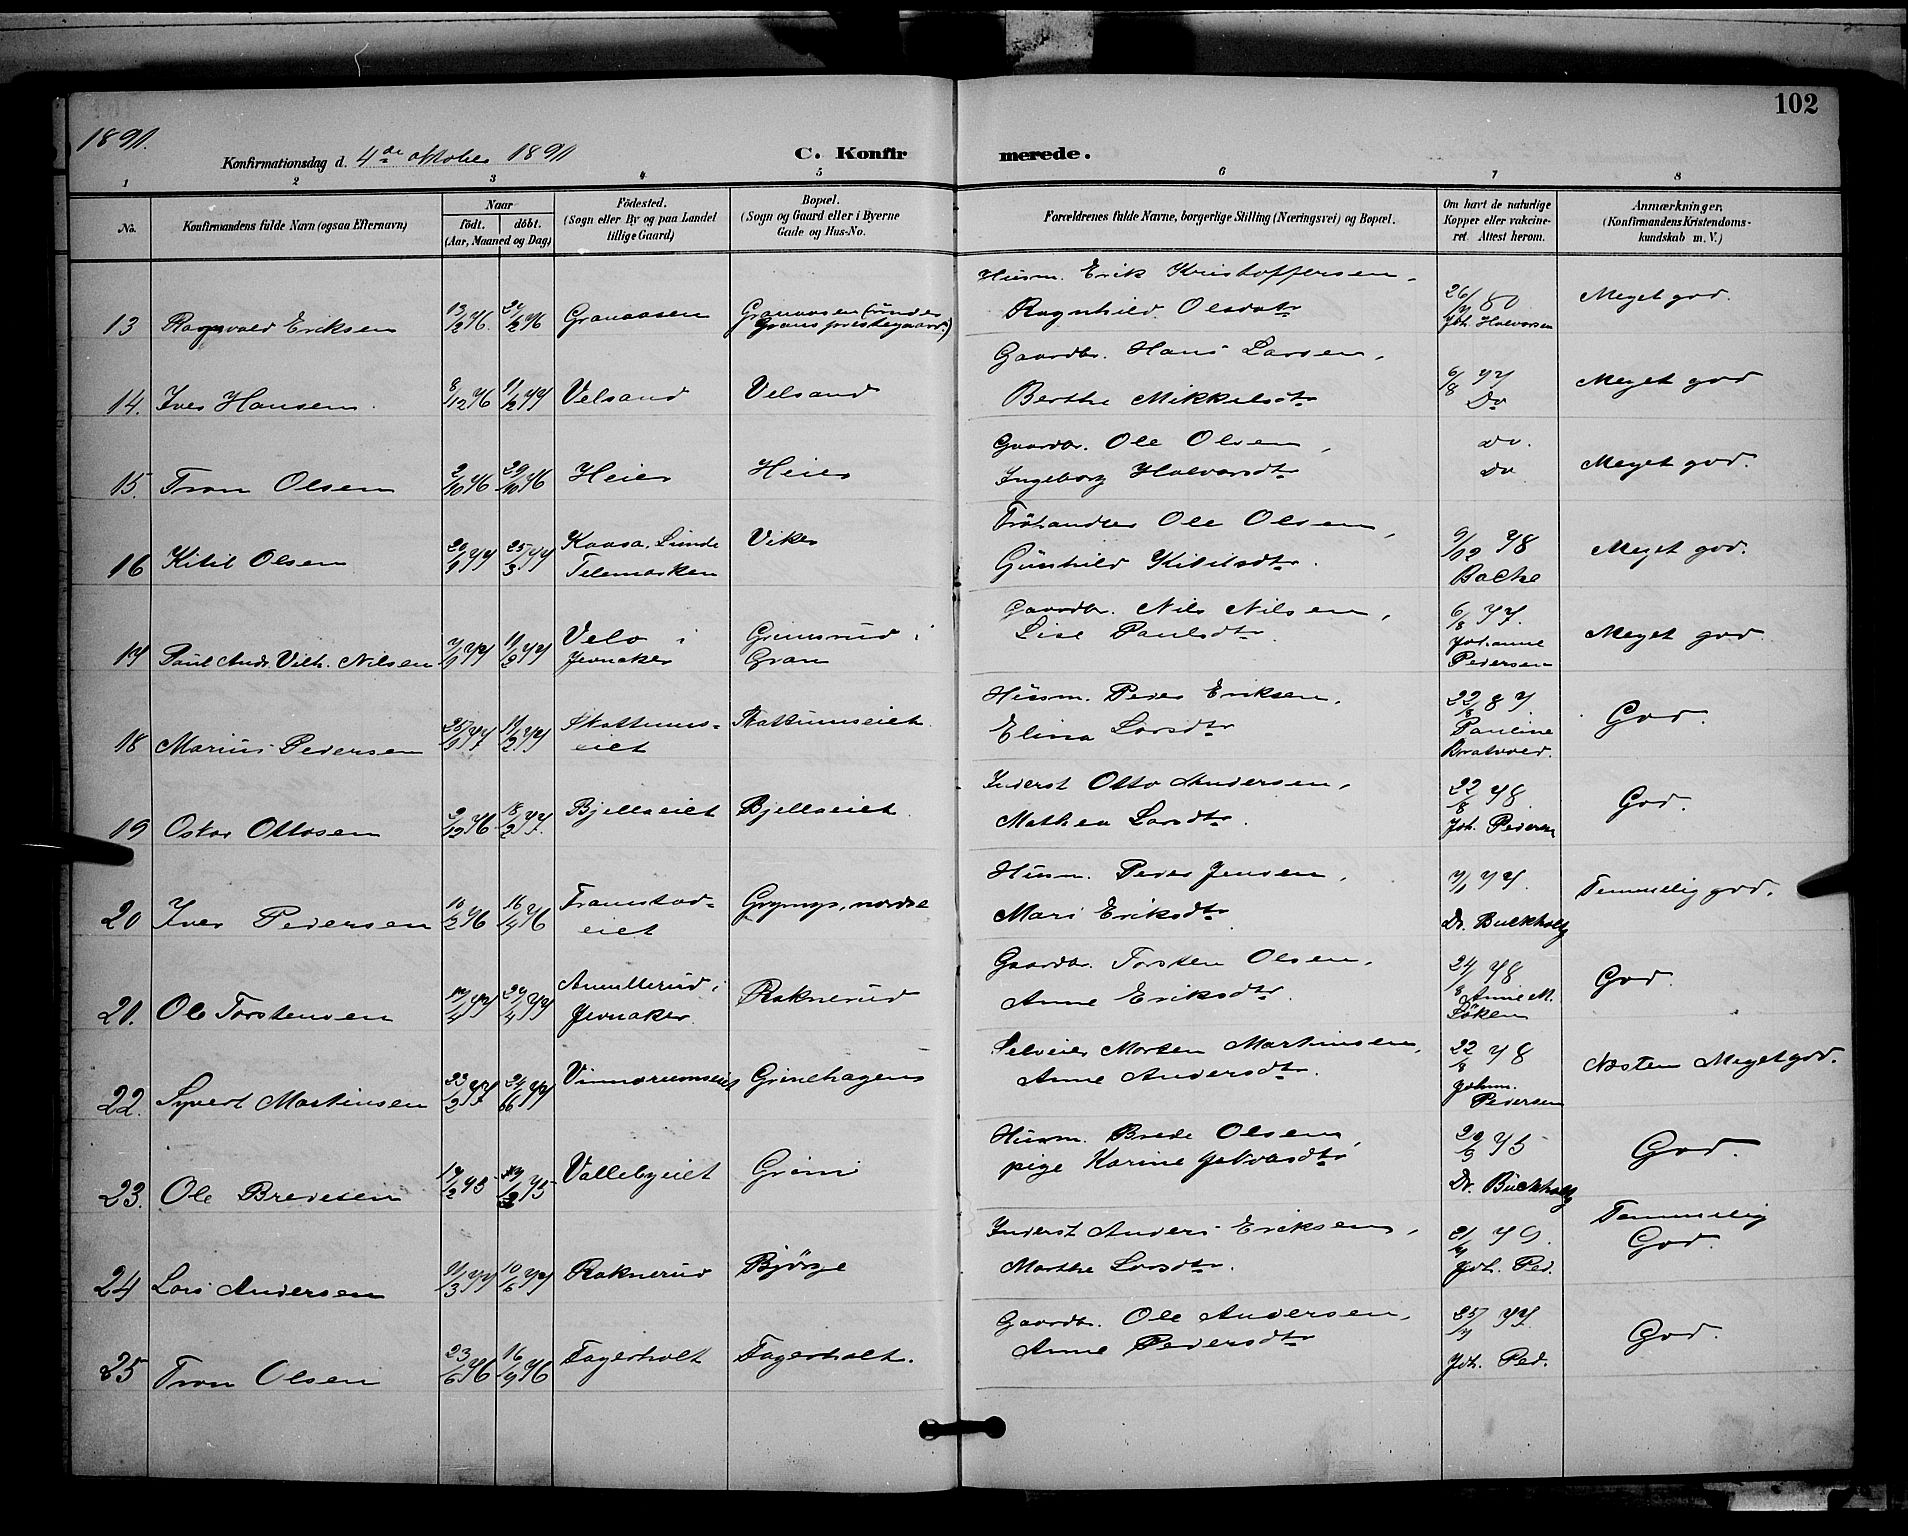 102
1891.
Konfirmationsdag d. 4de oktober 1891
C. Konfir merede.
1 2 3 4 5 6 7 8
No. Konfirmandens fulde Navn (ogsaa Efternavn) Naar født. døbt. (Aar, Maaned og Dag) Fødested. (Sogn eller By og paa Landet tillige Gaard) Bopæl. (Sogn og Gaard eller i Byerne Gade og Hus-No. Forældrenes fulde Navne, borgerlige Stilling (Næringsvei) og Bopæl. Om havt de naturlige Kopper eller vakcineret. Attest herom. Anmærkninger, (Konfirmandens Kristendomskundskab m. V.)
Husm. Erik Kristoffersen,
13 Ragnvald Eriksen 13/12 76. 27/12 76 Granaasen Granaasen (under Grans prestegaard) Ragnhild Olsdtr 26/9 80 Joh. Halvorsen Meget god.
Gaardbr. Hans Larsen,
14. Iver Hansen 8/12 76 11/2 77 Velsand Velsand Berthe Mikkelsdtr 6/8 77 Do Meget god
Gaardbr. Ole Olsen,
15. Tron Olsen 2/10 76 29/10 76 Heier Heier Ingeborg Halvorsdtr do. do Meget god.
Frøhandler Ole Olsen,
16 Kitil Olsen 25/3 77 Kaasa, Lunde Telemarken Viker Gunhild Kitilsdtr. 9/12 78 Bache Meget god.
Gaardbr. Nils Nilsen,
17 Paul Andr. Vilh. Nilsen 7/1 77 11/2 77 Velo i Jevnaker Grimsrud i Gran Lise Paulsdtr 6/8 77. Johanne Pedersen Meget god
Husm. Peder Eriksen,
18 Marius Pedersen 25/1 77 11/2 77 Skattums= eiet Skattumseiet. Elina Larsdtr 22/8 87. Pauline Bratvold. God.
Inderst Otto Andersen,
19 Oskar Ottosen 2/12 76 18/2 77. Bjellaeiet Bjellaeiet. Mathea Larsdtr. 22/8 78. Joh. Pedersen God.
Husm. Peder Jensen,
20 Iver Pedersen 10/2 76 16/4 76 Framstad= eiet Grymyr, nordre Mari Eriksdtr 7/1 77. Dr. Buckholtz Temmelig god.
Gaardbr. Torsten Olsen,
21. Ole Torstensen 29/4 77 Amulterud i Jevnaker Raknerud Anne Eriksdtr. 24/8 78 Anne M. Løken God.
Selveier Morten Martinsen,
22. Syvert Martinsen 23/2 77 24/6 77 Vinnorumseiet Grinehagens Anne Andersdtr. 22/8 78 Johan. Pedersen Næsten Meget god.
Husm. Brede Olsen,
23. Ole Bredesen 14/2 75 Vallebyeiet Grini pige Karine Halvorsdtr 20/9 75 Dr. Buckholtz God.
Inderst Anders Eriksen,
24 Lars Andersen 11/3 77 10/6 77 Raknerud Bjørge Marthe Larsdtr. 21/9 79. Joh. Ped. Temmelig God.
Gaardbr. Ole Andersen,
25 Tron Olsen 23/6 76 16/9 76 Fagerholt Fagerholt. Anne Pedersdtr 25/9 77. Joh. Ped. God.